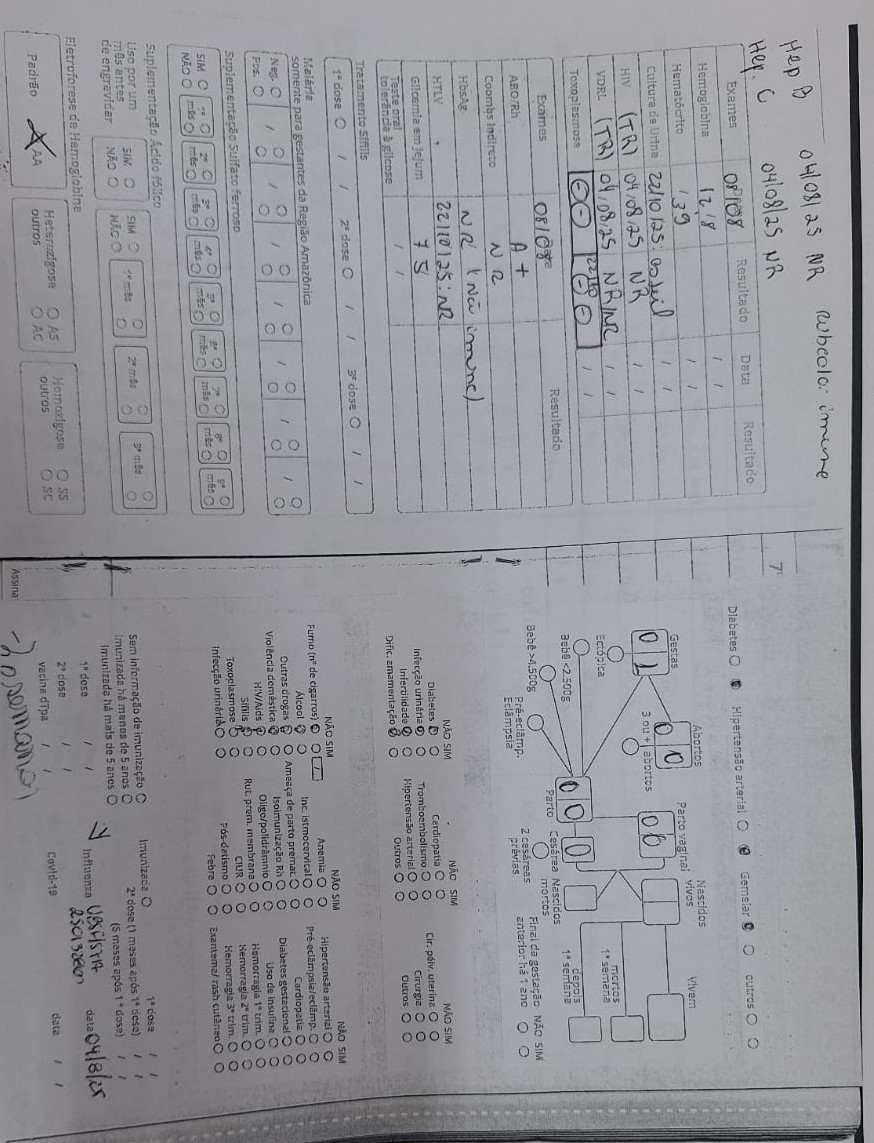 Hep B 04/08/25 NR Rubeola: imune
Hep. C 04/08/25 NR
Exames 08/08 Resultado Data Resultado
Hemoglobina 12,8 / /
Hematócrito 39 / /
Cultura de Urina 22/10/25: / /
HIV (TR) 04/08/25 NR / /
VDRL (TR) 04/08/25 NR/NR / /
Toxoplasmose 22/10 / /
Exames 08/08 Resultado
ABO/Rh A+
Coombs Indireto NR
HbsAg NR (Não imune)
HTLV 22/10/25: NR
Glicemia em jejum 75
Teste oral
tolerância à glicose / /
Tratamento Sífilis
1ª dose / / 2ª dose / / 3ª dose / /
Malária
somente para gestantes da Região Amazônica
Neg. / / / / / /
Pos.
Suplementação Sulfato ferroso
SIM 1º 2º 3º 4º 5º 6º 7º 8º 9º
NÃO mês mês mês mês mês mês mês mês mês
Suplementação Ácido fólico
Uso por um
mês antes
de engravidar
SIM
NÃO
SIM
NÃO
1º mês 2º mês 3º mês
Eletroforese de Hemoglobina
Padrão AA Heterozigose
outros
AS
AC
Homozigose
outros
SS
SC
7
Diabetes Hipertensão arterial Gemelar outros
Gestas Abortos Parto vaginal Nascidos
vivos
Vivem
01 00 00
3 ou + abortos
Ectópica
Bebê <2.500g
Bebê >4.500g
Pré-eclâmp.
Eclâmpsia
00 0
Parto Cesárea Nascidos
mortos
2 cesáreas
prévias
mortos
1ª semana
depois
1ª semana
Final da gestação
anterior há 1 ano
NÃO SIM
NÃO SIM NÃO SIM NÃO SIM
Diabetes Cardiopatia Cir. pélv. uterina
Infecção urinária Tromboembolismo Cirurgia
Infertilidade Hipertensão arterial Outros
Dific. amamentação Outros
NÃO SIM NÃO SIM NÃO SIM
Fumo (nº de cigarros) Anemia Hipertensão arterial
Álcool Inc. istmocervical Pré-eclâmpsia/eclâmp.
Outras drogas Ameaça de parto premat. Cardiopatia
Violência doméstica Isoimunização Rh Diabetes gestacional
HIV/Aids Oligo/polidrâmnio Uso de insulina
Sífilis Rut. prem. membrana Hemorragia 1º trim.
Toxoplasmose CIUR Hemorragia 2º trim.
Infecção urinária Pós-datismo Hemorragia 3º trim.
Febre Exantema/rash cutâneo
Sem informação de imunização
Imunizada há menos de 5 anos
Imunizada há mais de 5 anos
Imunizada 1ª dose / /
2ª dose (1 meses após 1ª dose) / /
(6 meses após 1ª dose) / /
1ª dose / /
2ª dose / /
vacina dTpa / /
Influenza data 04/8/25
Covid-19 data / /
Assina
→ 20 semanas